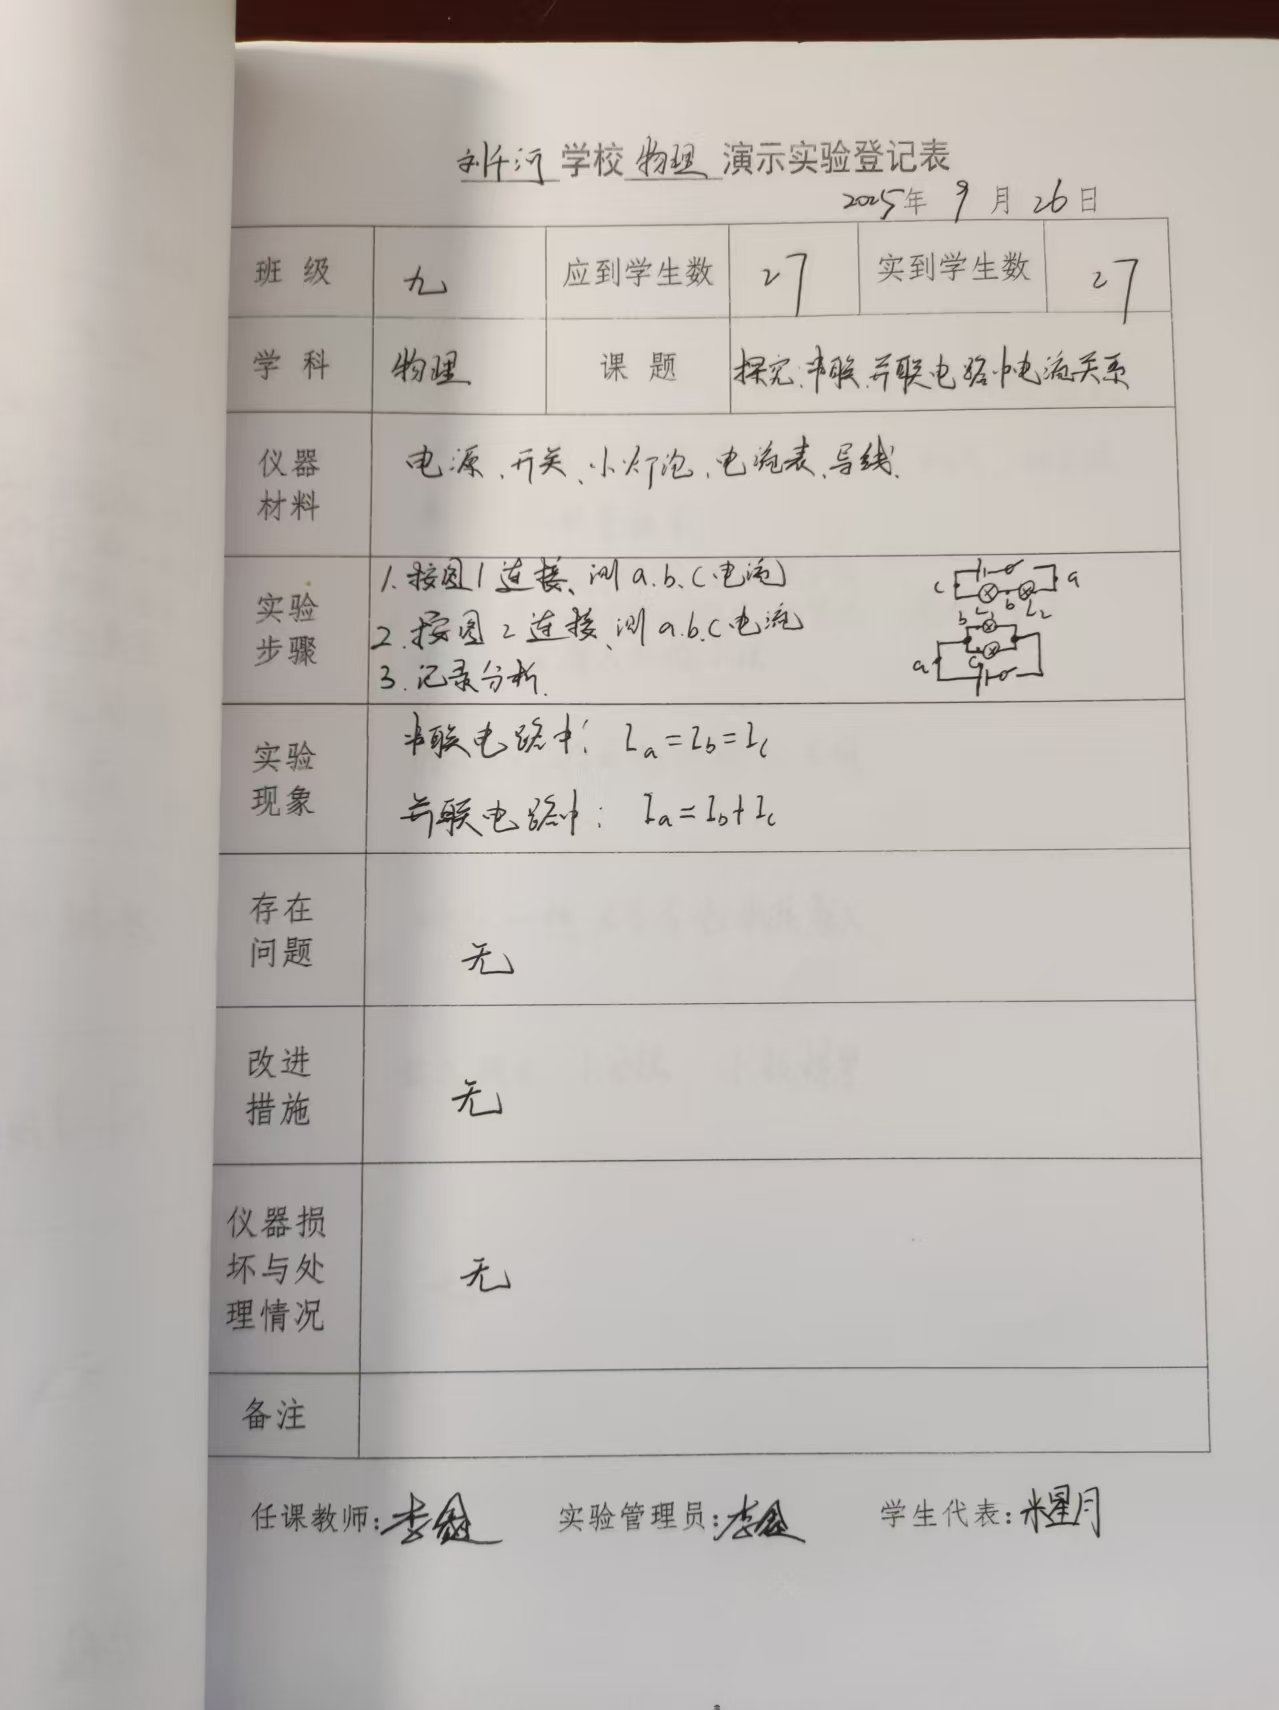 刘千河 学校 物理 演示实验登记表
2025年 9 月 26日
班级 九 应到学生数 27 实到学生数 27
学科 物理 课题 探究串联、并联电路中电流关系
仪器材料 电源、开关、小灯泡、电流表、导线.
实验步骤
1.按图1连接、测a.b.c电流
2.按图2连接、测a.b.c电流
3.记录分析.
c L1 b L2 a
b
a c
实验现象
串联电路中: Ia=Ib=Ic
并联电路中: Ia=Ib+Ic
存在问题 无
改进措施 无
仪器损坏与处理情况 无
备注
任课教师: 李 实验管理员: 李 学生代表: 米星月